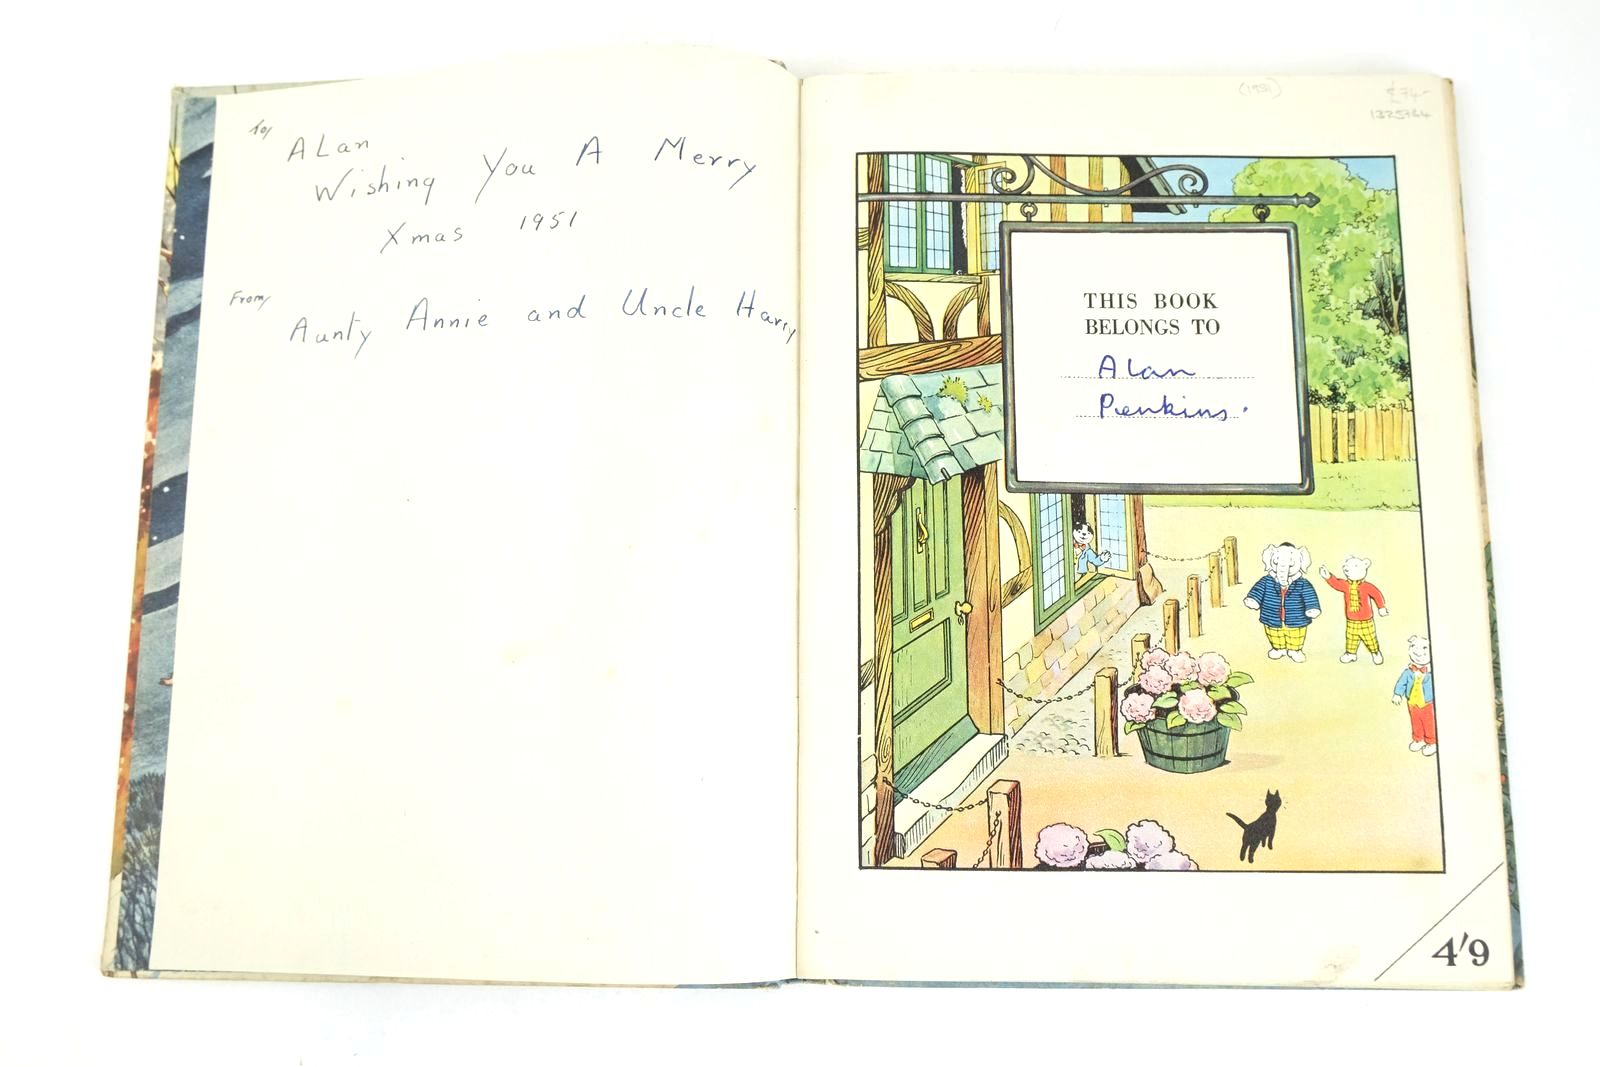 To/
ALan
Wishing You A Merry
Xmas 1951
From/
Aunty Annie and Uncle Harry
(1951)
£74-
1325764
THIS BOOK
BELONGS TO
Alan
Perkins.
4'9